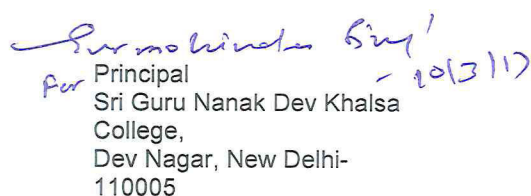 Gurmohinder Singh
For Principal - 20/3/17
Sri Guru Nanak Dev Khalsa
College,
Dev Nagar, New Delhi-
110005